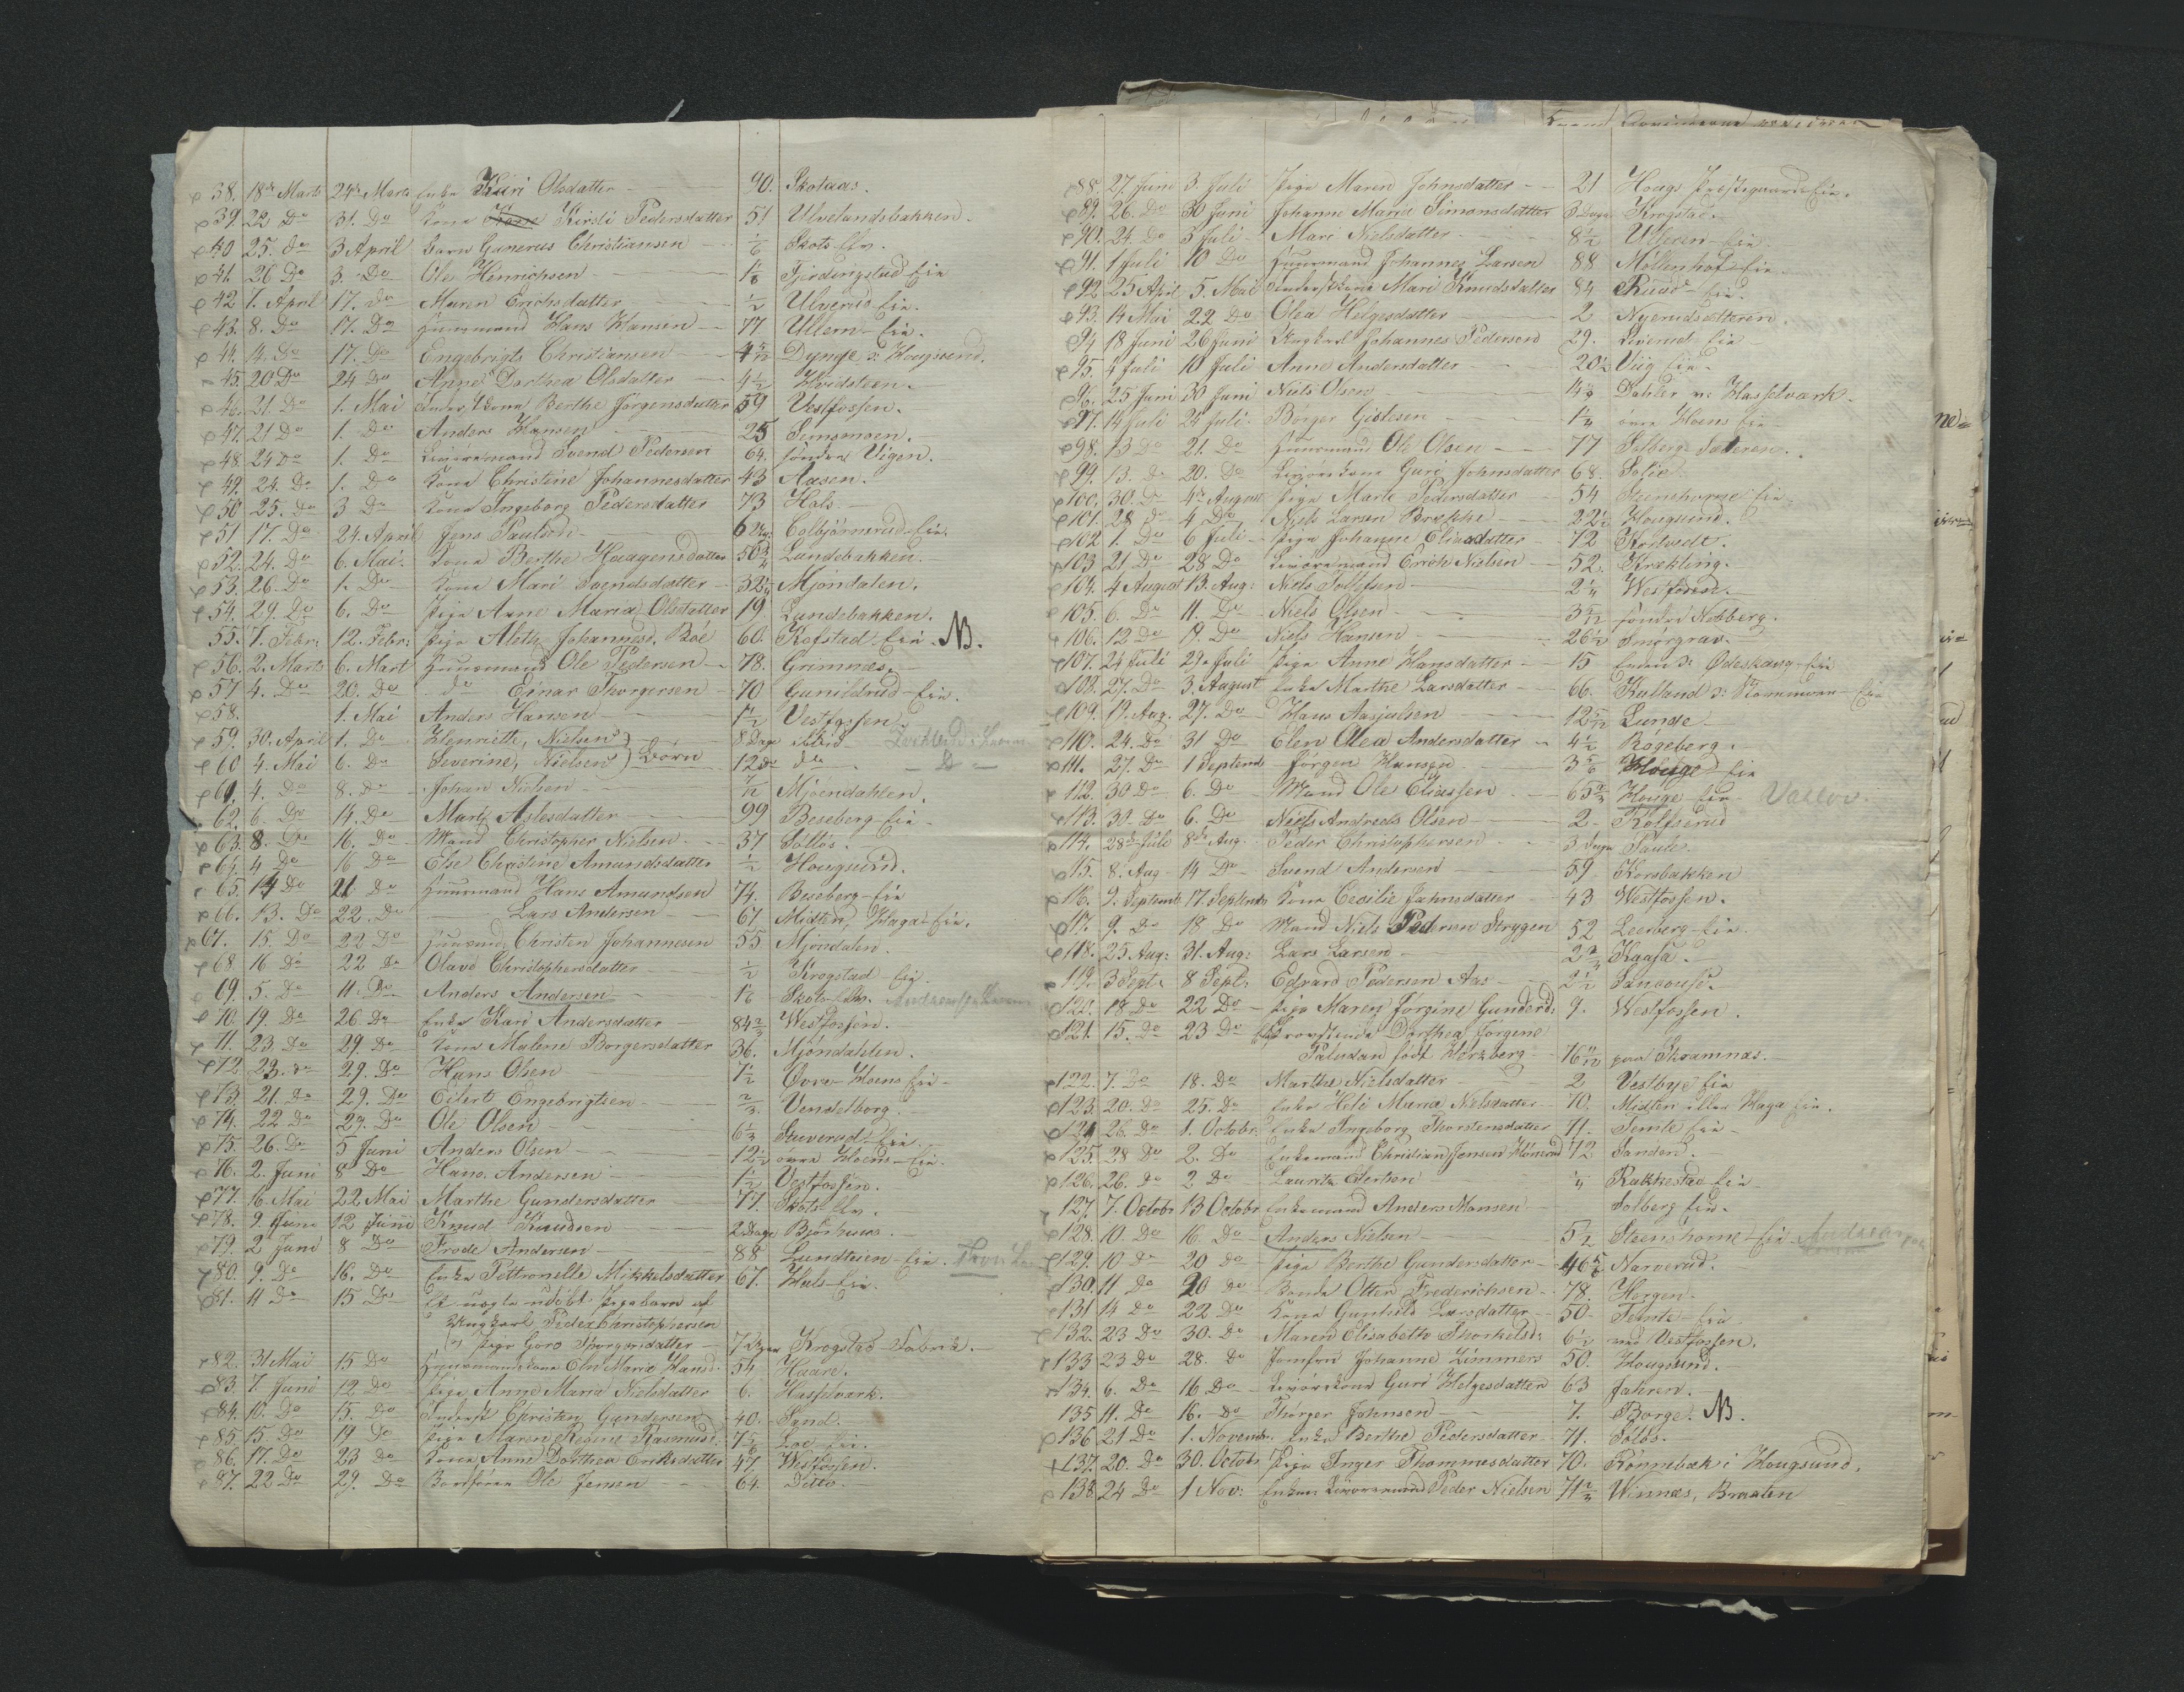 38. 18de Marts 24de Marts Enke Kari Olsdatter 90. Skotaas.
39. 22 Do 31. Do Kone Kirsti Pedersdatter 51 Ulvelandsbakken.
40 25. do 3 April Barn Gunerius Christiansen 1/6 Skots Elv.
41. 26 Do 3. Do Ole Henrichsen Fjerdingstad Eie
42 7. April 17. Do Maren Erichsdatter 1/2 Ulverud Eie.
43. 8. Do 17. Do Huusmand Hans Hansen 77 Ullern Eie.
44. 14. Do 17. Do Engebrigt Christiansen 4 5/12 Dynge v: Hougsund.
45. 20 Do 24 Do Anne Dorthea Olsdatter 4 1/2 Hvidsteen.
46. 21. Do 1. Mai Inderstkone Berthe Jörgensdatter 59 Vestfossen.
47. 21 Do 1. Do Anders Hansen 25 Semsmoen.
48. 24 Do 1. Do Livöremand Svend Pedersen 64. söndre Vigen.
49. 24. Do 1. Do Kone Christine Johannesdatter 43 Aasen.
50 25. Do 3 Do Kone Ingeborg Pedersdatter 73 Hals.
51 17. Do 24. April Jens Paulsen 6 Colbjörnerud Eie.
52. 24. Do 6. Mai. Kone Berthe Haagensdatter 50 3/4 Lundebakken.
53. 26. Do 1. Do Kone Mari Svendsdatter 32 1/4 Mjöndalen.
54. 29. Do 6. Do Pige Anne Maria Olsdatter 19 Lundebakken.
55. 7. Febr: 12. Febr: Pige Aleth Johannesd. Böe 60. Kofstad Eie NB.
56. 2. Marts 6. Mart Huusmand Ole Pedersen 78. Grimnæs.
57 4. Do 20. Do do Einar Thorgersen 70 Gunildrud Eie.
58. 1. Mai Anders Hansen Vestfossen.
59. 30. April 1. Do Henriette, Nielsen } 8 Dage ibid
60 4. Mai 6. Do Severine, Nielsen } Börn 12 Do do Do
61. 4. Do 8. Do Johan Nielsen Mjöendahlen.
62. 6. Do 14. Do Marte Aslesdatter 99 Beseberg Eie
63. 8. Do 16. Do Mand Christopher Nielsen 37 Sölløs.
64. 4 Do 16 Do Else Christine Amundsdatter 1/2 Hougsund.
65. 14 Do 21 Do Huusmand Hans Amundsen 74. Beseberg Eie
66. 13. Do 22. Do Lars Andersen 67 Midten, Haga Eie.
67. 15. Do 22 Do Huusmd. Christen Johannesen 55 Mjöndalen.
68 16 Do 22 Do Olava Christophersdatter 1/2 Krogstad Eie.
69. 5. Do 11. Do Anders Andersen Skots Elv.
70. 19. Do 26. Do Enke Kari Andersdatter 84 2/3 Westfossen.
71. 23 Do 29. Do Kone Malene Borgersdatter 36. Mjöndahlen.
72. 23. do 29. Do Hans Olsen Övre Hoens Eie
73. 21. Do 29. Do Eilert Engebrigtsen 2/3. Vendelborg.
74. 22 Do 29. Do Ole Olsen 6 1/3 Stuverud Eie.
75. 26. Do 5 Juni Anders Olsen 12 1/2 övre Hoens Eie.
76. 2. Juni 8 Do Hans Andersen 1 1/2 Vestfossen.
77. 16. Mai 22. Mai Marthe Gundersdatter 77. Skots Elv.
78. 9. Juni 12 Juni Knud Knudsen 2 Dage Björhuus.
79. 2 Juni 8 Do Frode Andersen 88 Lundteien Eie.
80. 9. Do 16. Do Enke Pettronelle Mikkelsdatter 67. Hals Eie.
81. 11 Do 15 Do Et uægte udöbt Pigebarn af
Ungkarl Peder Christophersen
og Pige Goro Thorgersdatter 7 Krogstad Fabrik.
82. 31 Mai 15 Do Huusmandskone Else Marie Hansd. 54 Haare.
83. 7. Juni 12 Do Pige Anne Maria Nielsdatter 6. Hasselværk.
84. 10. Do 15. Do Inderst Christen Gundersen 40. Sand.
85. 15 Do 19 Do Pige Maren Regine Rasmusd. 7 5/6 Loe Eie.
86. 17. Do 23 Do Kone Anne Dorthea Eriksdatter 47 Westfossen.
87. 22 Do 29. Do Ole Jensen 64. Ditto.
88. 27. Juni 3. Juli Pige Maren Johnsdatter 21 Hougs Præstegaards Eie.
89. 26. Do 30 Juni Johanne Maria Simonsdatter 3 Dage Krogstad.
90. 24. Do 3 Juli Mari Nielsdatter 8 1/2 Ulleren Eie.
91. 1 Juli 10 Do Huusmand Johannes Larsen 88 Möllenhof Eie
92 25 April 5. Mai Inderstkone Mari Knudsdatter 84 Ruud Eie.
93. 14 Mai 22 Do Olea Helgesdatter 2 Nyerudsætteren.
94 18 Juni 26 Juni Ungkarl Johannes Pedersen 29. Eie
95. 4 Juli 10 Juli Anne Andersdatter 20 1/2 Viig Eie.
96. 25 Juni 30 Juni Niels Olsen Dahler v: Hasselværk.
97. 14 Juli 24 Juli. Börger Gislesen övre Hoens Eie
98. 13 Do 21. Do Huusmand Ole Olsen 77 Solberg Sæteren.
99. 13. Do 20. Do Livörekone Guri Johnsdatter 68. Solie.
100. 30. Do 4de August Pige Marte Pedersdatter 54 Steenshorne Eie
101. 28 Do 4 Do Niels Larsen Brække 22 1/2 Hougsund.
102 1. Do 6 Juli Pige Johanne Eliasdatter 72 Kortvedt.
103 21 Do 28 Do Livöremand Erich Nielsen 52. Krækling.
104. 4 August 13. Aug: Niels Tollefsen 2 1/4 Westfossen.
105. 6. Do 11. Do Niels Olsen söndre Nebberg.
106. 12 Do 19. Do Niels Hansen 26 1/2 Smörgrav.
107. 24 Juli 29. Juli Pige Anne Hansdatter 15 Enden v: Ødeskaug Eie
108. 27. Do 3. August Enke Marthe Larsdatter 66. Eie
109. 19. Aug. 27. Do Hans Aasjulsen 12 5/12 Lunde
110. 24. Do 31 Do Elen Olea Andersdatter 4 1/2 Røgeberg.
111. 27. Do 1 Septemb Jörgen Hansen 3 5/6 Houge Eie
112. 30 Do 6. Do Mand Ole Eliassen 65 2/3 Houge Eie
113. 31. Do 6. Do Niels Andreas Olsen 2. Kolfserud
114. 28de Juli 8de Aug. Peder Christophersen 3 Dage
115. 8. Aug 14 Do Svend Andersen 59 Korsbakken
116. 9. Septemb 17. Septemb Kone Cecilie Jahnsdatter 43 Westfossen.
117. 9. Do 18 Do Mand Niels Pedersen Strygen 52 Leerberg Eie.
118. 25 Aug: 31. Aug: Lars Larsen Kaasa.
119. 3 Sept. 8 Sept. Edvard Pedersen Aas 2 1/2 Sansouse.
122. 18 Do 22 Do Pige Maren Jörgine Gundersd: 9. Westfossen.
121. 15. Do 23 Do Provstinde Dorthea Jörgene
Paludan födt Hertzberg 76 11/12 paa Skramnæs.
122. 7. Do 18. Do Marthe Nielsdatter 2 Vestbye Eie
123. 20. Do 25. Do Enke Heli Maria Nielsdatter 70. Midten eller Haga Eie.
124 26. Do 1. Octobr. Enke Ingeborg Thorstensdatter 71. Temte Eie
125. 28 Do 2. Do Enkemand Christian Jensen 72 Sanden.
126. 26. Do 2. Do Lauritz Rakkestad Eie
127. 7. Octobr 13 Octobr Enkemand Anders Monsen Solberg Eie.
128. 10. Do 16. Do Anders Nielsen 5 1/2 Steenshorne Eie
129. 10 Do 20 do Pige Berthe Gundersdatter 46 5/6 Narverud.
130. 11 Do 20 do Bonde Otter Frederichsen 78. Horgen.
131 14 do 22 Do Kone Gunhild Larsdatter 50. Temte Eie
132. 23 Do 30. Do Maren Elisabette Thorkelsd: 6 1/2 ved Vestfossen.
133 23 Do 28. Do Jomfru Johanne Zimmers 50. Hougsund.
134. 6. Do 16 Do Livörekone Guri Helgesdatter 63 Jahren.
135 11. Do 16. Do Thorger Johnsen 7. Borge. NB.
136 21 Do 1. Novemb. Enke Berthe Pedersdatter 71. Söløs.
137. 20. Do 30. Octobr Pige Inger Thommesdatter 70. Rönnebæk i Hougsund.
138. 24 Do 1 Nov: Livöremand Peder Nielsen Winnæs, Braaten